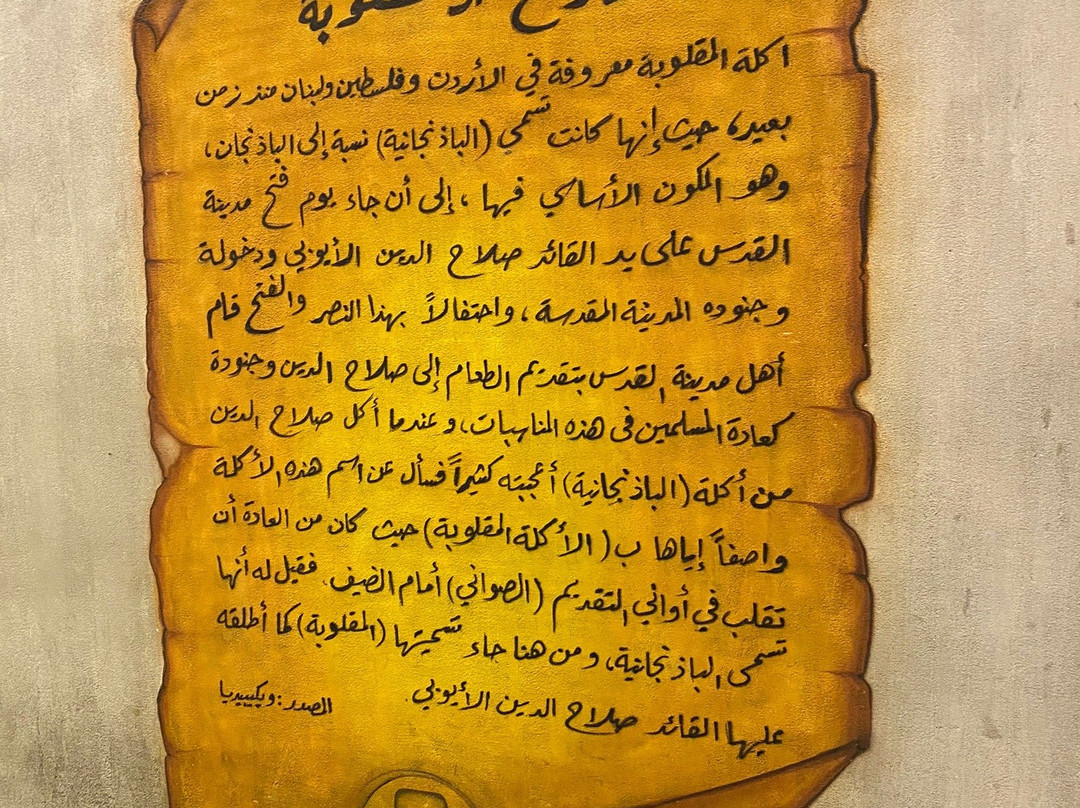 المقلوبة
اكلة المقلوبة معروفة في الأردن وفلسطين ولبنان منذ زمن
بعيد، حيث إنها كانت تسمي (الباذنجانية) نسبة إلى الباذنجان،
وهو المكون الأساسي فيها، إلى أن جاء يوم فتح مدينة
القدس على يد القائد صلاح الدين الأيوبي ودخولة
وجنوده المدينة المقدسة، واحتفالاً بهذا النصر والفتح قام
أهل مدينة القدس بتقديم الطعام إلى صلاح الدين وجنودة
كعادة المسلمين في هذه المناسبات، وعندما أكل صلاح الدين
من أكلة (الباذنجانية) أعجبته كثيراً فسأل عن اسم هذه الأكلة
واصفاً إياها ب (الأكلة المقلوبة) حيث كان من العادة أن
تقلب في أواني التقديم (الصواني) أمام الضيف. فقيل له أنها
تسمى الباذنجانية، ومن هنا جاء تسميتها (المقلوبة) كما أطلقه
عليها القائد صلاح الدين الأيوبي.
المصدر: ويكيبيديا